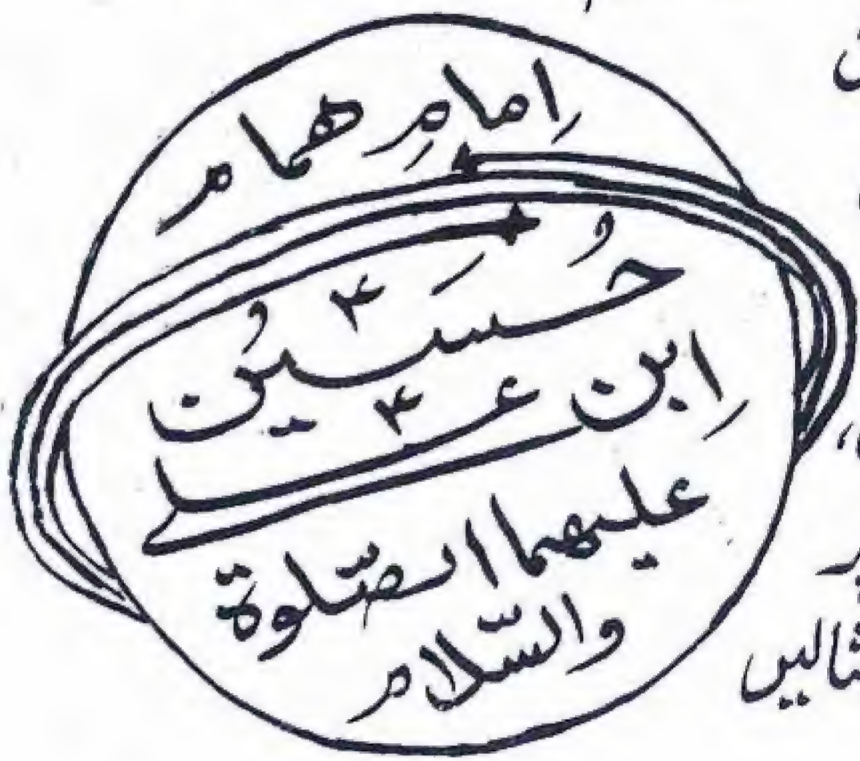 اِمامِ ھمام
حُسَینؑ
اِبنِ علیؑ
علیھما الصّلوة
والسّلام
مثالیں